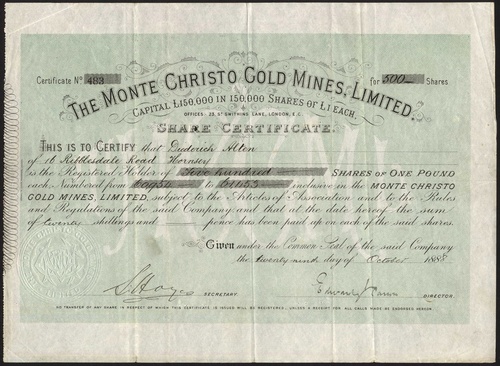 Certificate No 483 for 500 Shares
THE MONTE CHRISTO GOLD MINES, LIMITED.
CAPITAL £150,000 IN 150,000 SHARES OF £1 EACH.
OFFICES: 23, ST SWITHINS LANE, LONDON, E.C.
SHARE CERTIFICATE.
THIS IS TO CERTIFY that Diederich Alten
of 16 Ribblesdale Road Hornsey
is the Registered Holder of Five hundred SHARES OF ONE POUND
each, Numbered from to inclusive in the MONTE CHRISTO
GOLD MINES, LIMITED, subject to the Articles of Association and to the Rules
and Regulations of the said Company, and that at the date hereof the sum
of twenty shillings and pence has been paid up on each of the said shares.
Given under the Common Seal of the said Company
the twenty ninth day of October 1888
S. Hayes SECRETARY. Edward DIRECTOR.
NO TRANSFER OF ANY SHARE IN RESPECT OF WHICH THIS CERTIFICATE IS ISSUED WILL BE REGISTERED, UNLESS A REQUEST FOR ALL CALLS MADE BE ENDORSED HEREON.